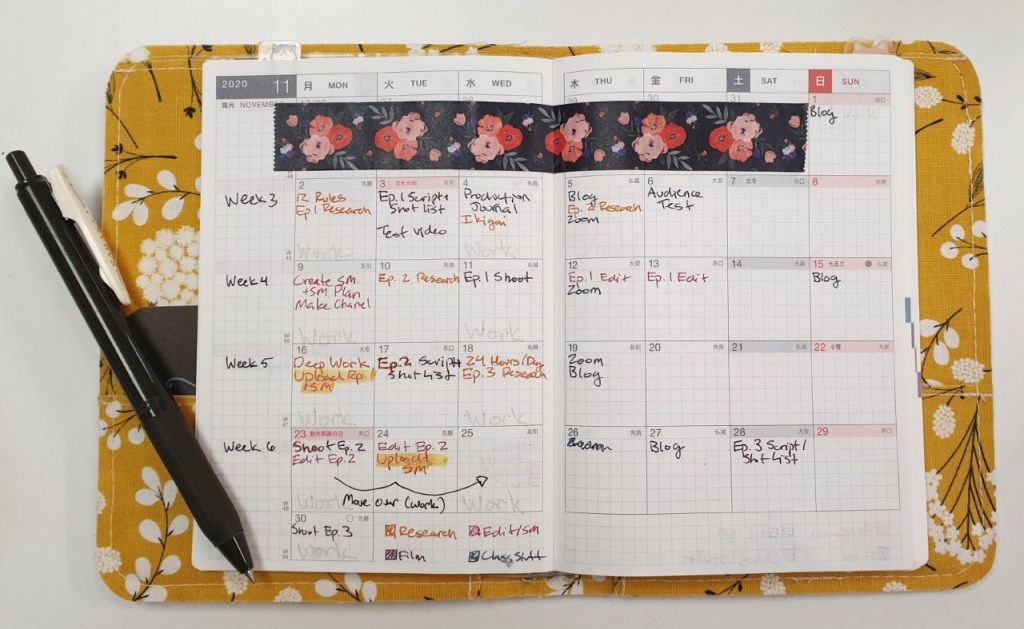 2020 11 月 MON 火 TUE 水 WED 木 THU 金 FRI 土 SAT 日 SUN
霜月 NOVEMBER
30 31 1
Blog
Week 3
2 3 文化の日 4 5 6 7 立冬 8
12 Rules
Ep 1 Research
Ep. 1 Script+
Shot list
Test video
Production
Journal
Ikigai
Blog
Ep. 2 Research
Zoom
Audience
Test
Week 4
9 10 11 12 13 14 15 七五三
Create SM
+SM Plan
Make Chanel
Ep. 2 Research
Ep 1 Shoot
Ep. 1 Edit
Zoom
Ep. 1 Edit
Blog
Week 5
16 17 18 19 20 21 22 小雪
Deep Work
Upload Ep. 1
+SM
Ep. 2 Script+
Shot list
24 Hours/Day
Ep. 3 Research
Zoom
Blog
Week 6
23 勤労感謝の日 24 25 26 27 28 29
Shoot Ep. 2
Edit Ep. 2
Edit Ep. 2
Upload+
SM
Blog
Ep. 3 Script/
Shot List
Move over (work)
30
Shoot Ep. 3
Research
Edit/SM
Film
Class Stuff